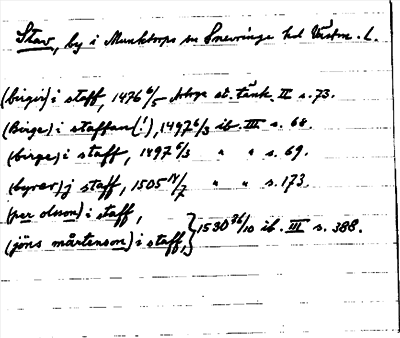 Stav, by i Munktorps sn Snevringe hd Västm. L.
(birgir) i staff, 1476 6/5 Arboga st. tänk. II s. 73.
(Birge) i staffan (!), 1497 6/3 ib. III s. 68.
(birge) i staff, 1497 6/3 " " s. 69.
(byrar) j staff, 1505 14/7 " " s. 173.
(per olsson) i staff,
(jöns mårtenson) i staff, } 1530 26/10 ib. III s. 388.